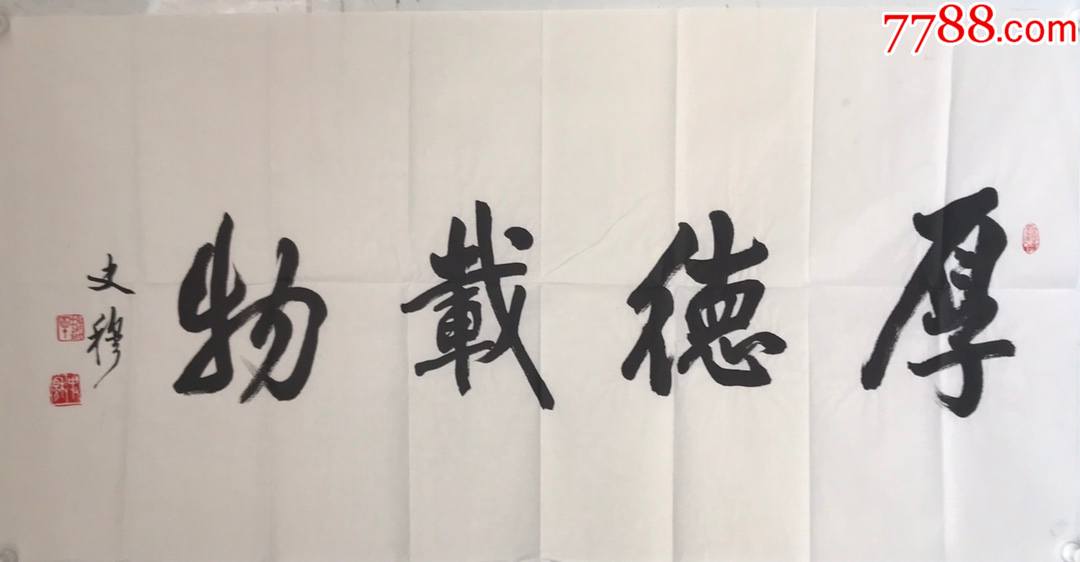 7788.com
厚德載物
文穆